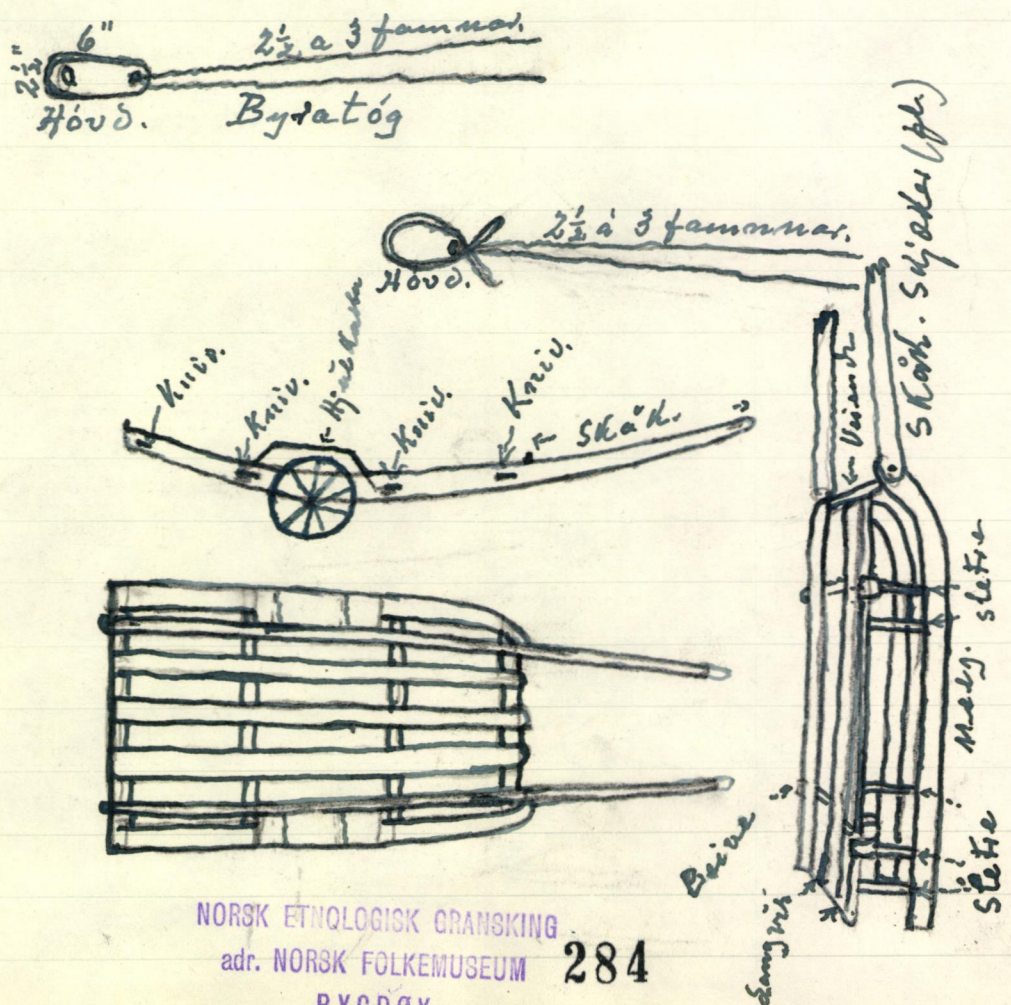 6"
2½"
2½ a 3 famnar.
Hóvd.
Byratóg
2½ á 3 famnnar.
Hóvd.
Kniv.
Kniv.
Kniv.
Kniv.
Skåk.
Skåk. Skjæker (pl.)
Medg. sletre
Sletre
NORSK ETNOLOGISK GRANSKING
adr. NORSK FOLKEMUSEUM
BYGDØY
284